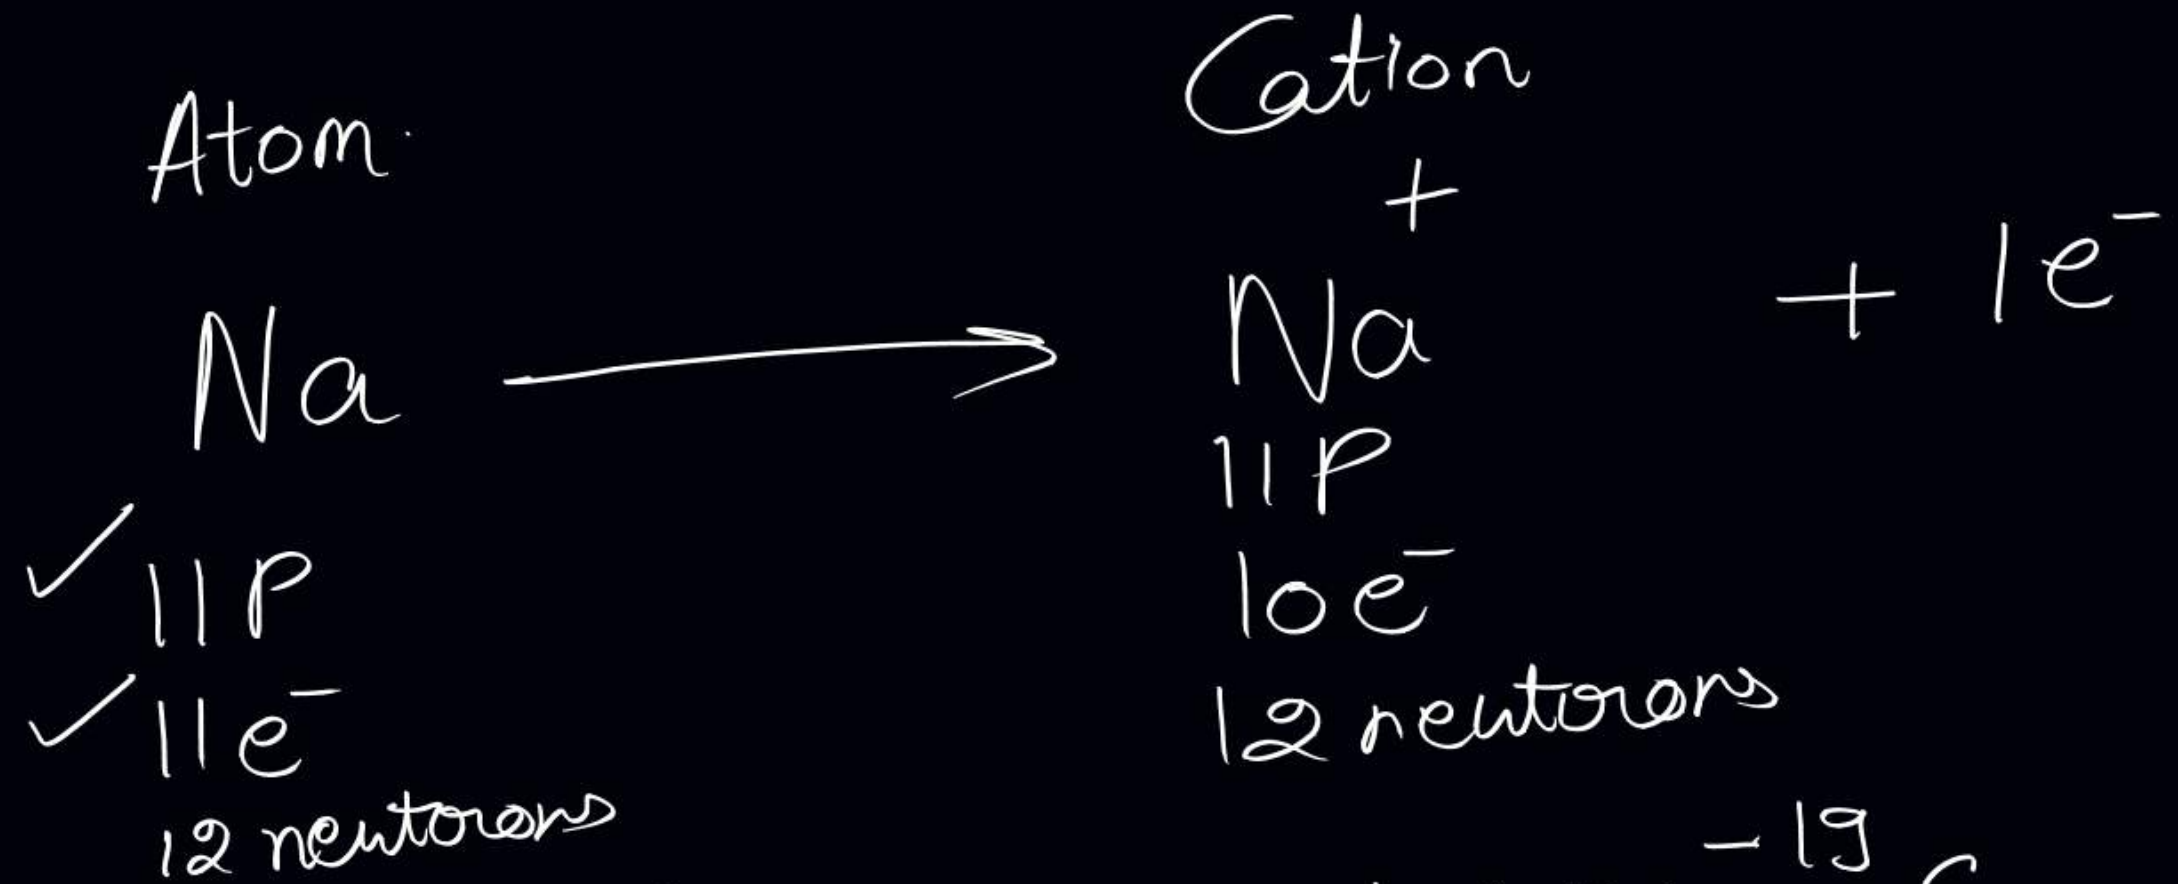 Atom.
Cation
Na → Na⁺ + 1e⁻
11P
10e⁻
12 neutrons
✓ 11P
✓ 11e⁻
12 neutrons
-19